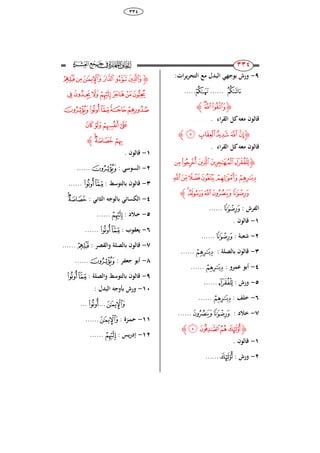 ٢٣٤
٢٣٤
٩- ورش بوجهي البدل مع التحريرات:
ءَاتَىٰكُمُ ...... نَهَىٰكُمۡ ......
﴿ وَٱتَّقُواْ ٱللَّهَۖ ﴾
قالون معه كل القراء .
﴿ إِنَّ ٱللَّهَ شَدِيدُ ٱلۡعِقَابِ ﴾
قالون معه كل القراء .
﴿ لِلۡفُقَرَآءِ ٱلۡمُهَٰجِرِينَ ٱلَّذِينَ أُخۡرِجُواْ مِن
دِيَٰرِهِمۡ وَأَمۡوَٰلِهِمۡ يَبۡتَغُونَ فَضۡلٗا مِّنَ ٱللَّهِ
وَرِضۡوَٰنٗا وَيَنصُرُونَ ٱللَّهَ وَرَسُولَهُۥٓۚ
أُوْلَٰٓئِكَ هُمُ ٱلصَّٰدِقُونَ ٨ ﴾
الفرش : وَرِضۡوَٰنٗا ......
١- قالون .
٢- شعبة : وَرِضۡوَٰنٗا ......
٣- قالون بالصلة : دِيَٰرِهِمۡ ......
٤- أبو عمرو : دِيَٰرِهِمۡ ......
٥- ورش : لِلۡفُقَرَآءِ ......
٦- خلف : دِيَٰرِهِمۡ ......
٧- خلاد : وَرِضۡوَٰنٗا وَيَنصُرُونَ ......
١- قالون .
٢- ورش : أُوْلَٰٓئِكَ ......
﴿ وَٱلَّذِينَ تَبَوَّءُو ٱلدَّارَ وَٱلۡإِيمَٰنَ مِن قَبۡلِهِمۡ
يُحِبُّونَ مَنۡ هَاجَرَ إِلَيۡهِمۡ وَلَا يَجِدُونَ فِي
صُدُورِهِمۡ حَاجَةٗ مِّمَّآ أُوتُواْ وَيُؤۡثِرُونَ
عَلَىٰٓ أَنفُسِهِمۡ وَلَوۡ كَانَ
بِهِمۡ خَصَاصَةٞۚ ﴾
١- قالون .
٢- السوسي : وَيُؤۡثِرُونَ ......
٣- قالون بالتوسط : مِمَّآ أُوتُواْ ......
٤- الكسائي بالوجه الثاني : خَصَاصَةٞ
٥- خلاد : إِلَيۡهِمۡ ......
٦- يعقوب : مِمَّآ أُوتُواْ ......
٧- قالون بالصلة والقصر : قَبۡلِهِمۡ ......
٨- أبو جعفر : وَيُؤۡثِرُونَ ......
٩- قالون بالتوسط والصلة : مِمَّآ أُوتُواْ
١٠- ورش بأوجه البدل :
وَٱلۡإِيمَٰنَ ... أُوتُواْ ...
١١- حمزة : وَٱلۡإِيمَٰنَ ......
١٢- إدريس : إِلَيۡهِمۡ ......